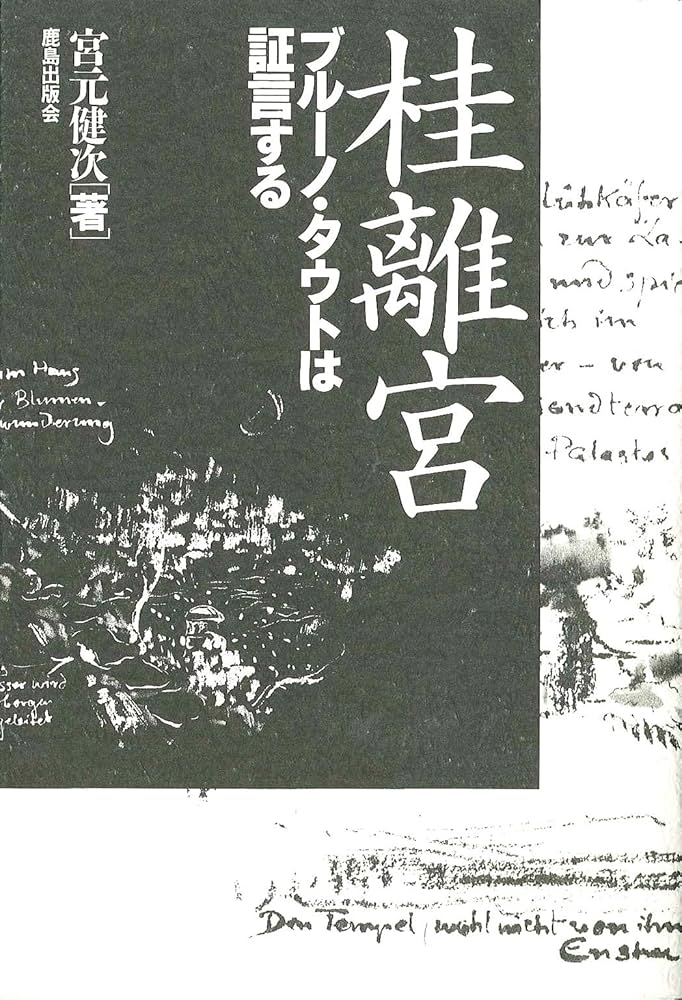 桂離宮
ブルーノ・タウトは
証言する
宮元健次[著]
鹿島出版会
im Hang
Blumen-
wunderung
sser wird
borgen
geleitet
Lühkäfer
zur La-
und spie
ich im
er – von
ondterra
Palastes
Den Tempel, wohl nicht von ihm